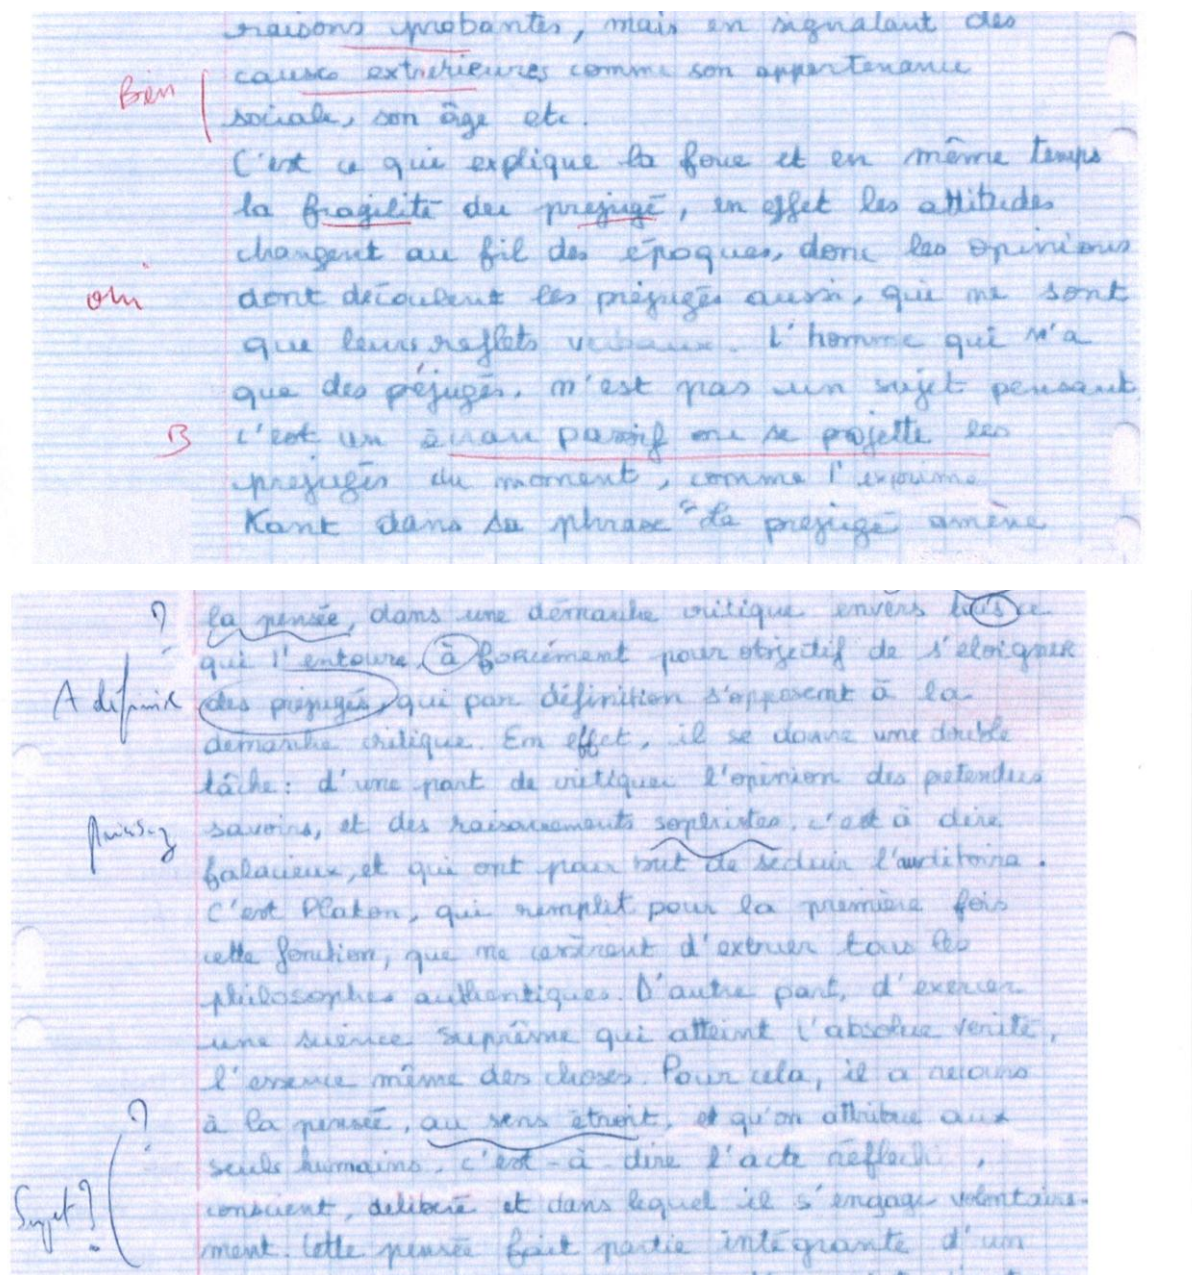 raisons probantes, mais en signalant des
Bien
causes extérieures comme son appartenance
sociale, son âge etc.
C'est ce qui explique la force et en même temps
la fragilité des préjugé, en effet les attitudes
changent au fil des époques, donc les opinions
oui
dont découlent les préjugés aussi, qui ne sont
que leurs reflets verbaux. L'homme qui n'a
que des péjugés, n'est pas un sujet pensant
B
c'est un écran passif ou se projette les
prejugés du moment, comme l'exprime
Kant dans sa phrase "Le prejugé amène
?
la pensée, dans une démarche critique envers tous ce
qui l'entoure, à forcément pour objectif de s'éloigner
A définir
des préjugés, qui par définition s'opposent à la
demarche critique. En effet, il se donne une double
tâche: d'une part de critiquer l'opinion des pretendus
savoirs, et des raisonnements sophistes, c'est à dire
falacieux, et qui ont pour but de séduir l'auditoire.
C'est Platon, qui remplit pour la première fois
cette fonction, que ne cesseront d'exercer tous les
philosophes authentiques. D'autre part, d'exercer
une science suprême qui atteint l'absolue verité,
l'essence même des choses. Pour cela, il a recours
?
à la pensée, au sens étroit, et qu'on attribue aux
seuls humains, c'est-à-dire l'acte réflechi,
Sujet?
conscient, déliberé et dans lequel il s'engage volontaire-
ment. Cette pensée fait partie intégrante d'un